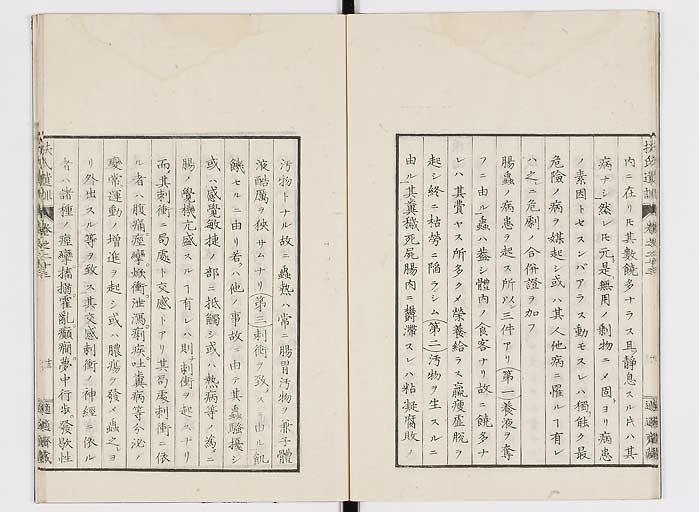 扶氏遺訓
内ニ在リ𪜈其數饒多ナラス且静息スル𪜈ハ其
病ナシ然レ𪜈元是無用ノ剰物ニメ固ヨリ病患
ノ素因トセスンハアラス動モスレハ獨能ク最
危險ノ病ノ媒起シ或ハ其人他病ニ罹ルヿ有レ
ハ之ニ危劇ノ合併證ヲ加フ
腸蟲ノ病患ヲ起ス所以三件アリ第一養液ヲ奪
フニ由ル蟲ハ葢シ體内ノ食客ナリ故ニ饒多ナ
レハ其費ヤス所多クメ榮養給ラス羸痩虛脱ヲ
起シ終ニ枯勞ニ陥ラシム第二汚物ヲ生スルニ
由ル其糞穢死屍腸内ニ欝滞スレハ粘凝腐敗ノ
汚物トナル故ニ蟲熱ハ常ニ腸胃汚物ヲ兼子體
液酷厲ヲ秧サムナリ第三刺衝ヲ致スニ由ル飢
饑セルニ由リ若クハ他ノ事故ニ由テ其蟲騒擾シ
或ハ感覺敏捷ノ部ニ抵觸シ或ハ熱病等ノ為ニ
腸ノ覺機亢盛スルヿ有レハ則刺衝ヲ起スナリ
而メ其刺衝ニ局處ト交感トアリ其局處刺衝ニ依
ル者ハ腹痛痙攣焮衝泄瀉痢疾吐糞病等分泌ノ
變常運動ノ增進ヲ起シ或ハ膿瘍ヲ發メ蟲之ヨ
リ外出スル等ヲ致ス其交感刺衝ノ神經ニ依ル
者ハ諸種ノ痙攣搐搦霍亂癲癇夢中行歩發歇性
扶氏遺訓